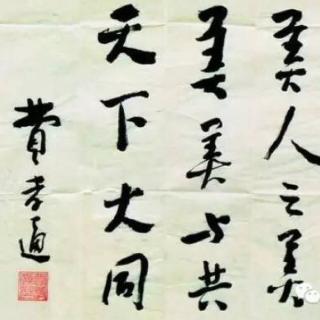 美人之美
美美与共
天下大同
費孝通